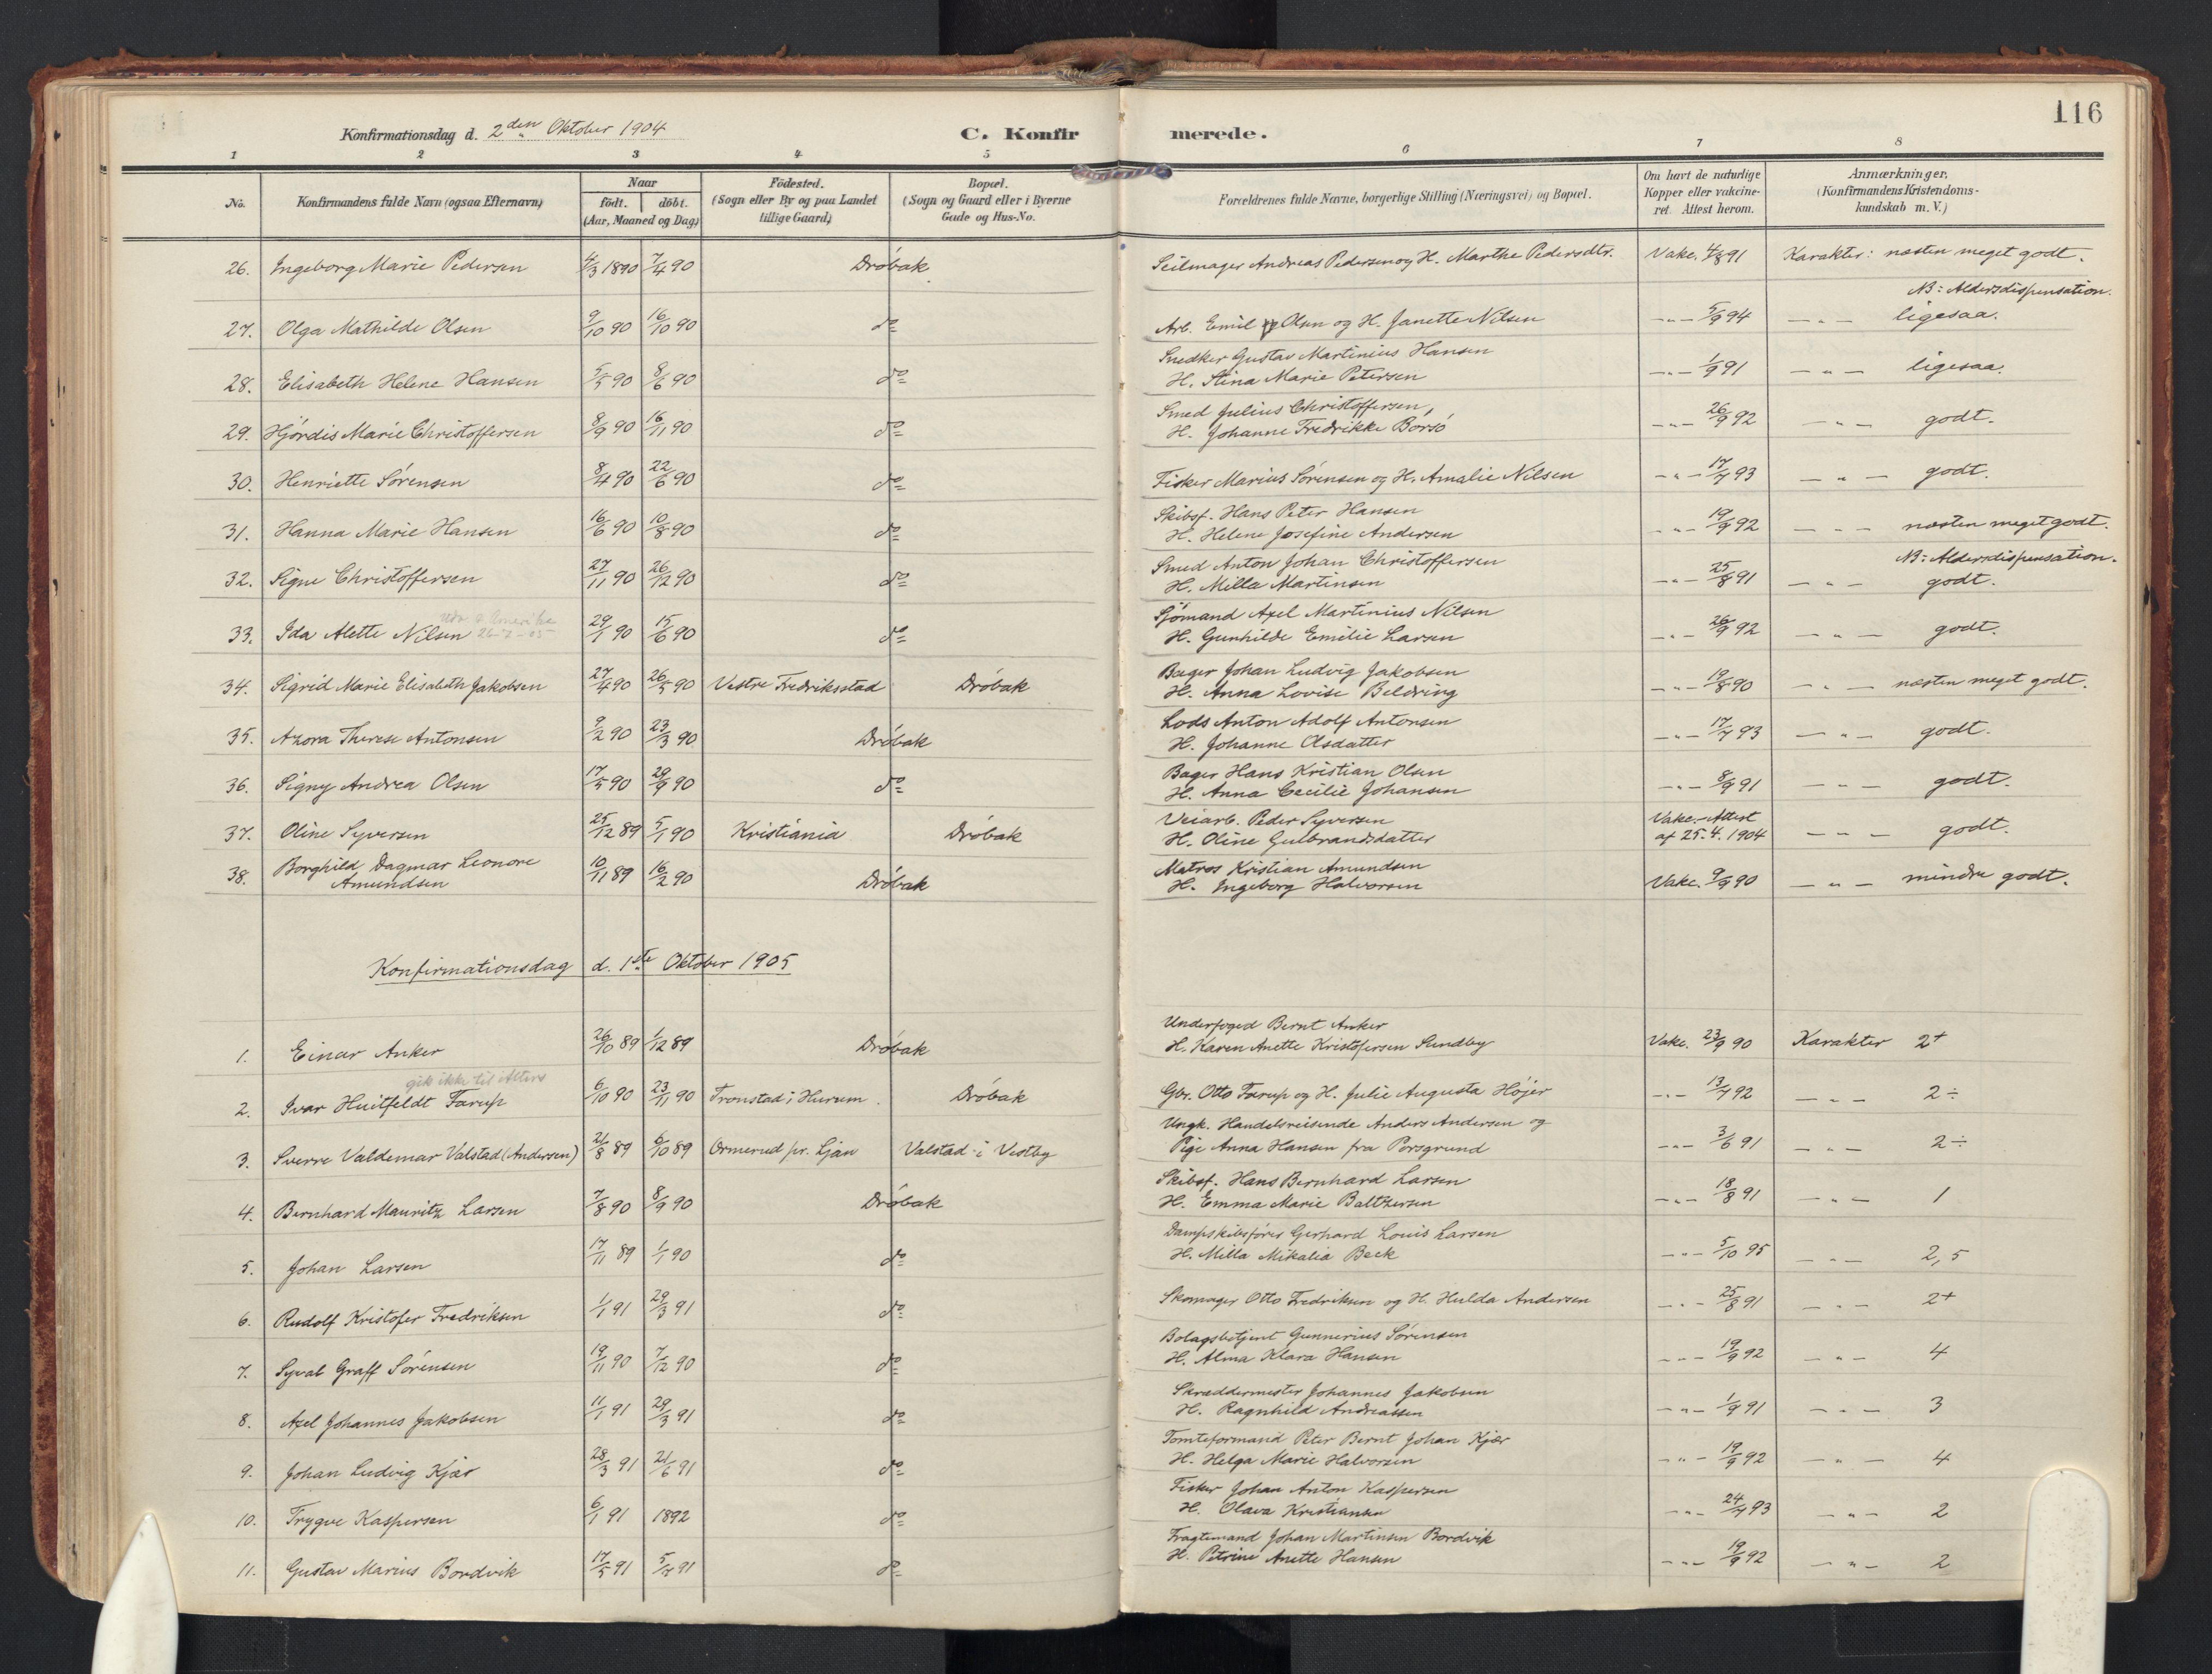 116
Konfirmationsdag d. 2den Oktober 1904 C. Konfirmerede.
1 2 3 4 5 6 7 8
No. Konfirmandens fulde Navn (ogsaa Efternavn) Naar födt. döbt. (Aar, Maaned og Dag) Födested. (Sogn eller By og paa Landet tillige Gaard) Bopæl. (Sogn og Gaard eller i Byerne Gade og Hus-No. Forældrenes fulde Navne, borgerlige Stilling (Næringsvei) og Bopæl. Om havt de naturlige Kopper eller vakcineret. Attest herom. Anmærkninger. (Konfirmandens Kristendomskundskab m. V.)
26. Ingeborg Marie Pedersen 4/3 1890 7/4 90 Dröbak Seilmager Andreas Pedersen og H. Marthe Pedersdtr. Vakc. 4/8 91 Karakter: næsten meget godt.
NB: Aldersdispensation.
27. Olga Mathilde Olsen 9/10 90 16/10 90 do Arb. Emil Olsen og H. Janette Nilsen -"- 5/9 94 -"- ligesaa.
28. Elisabeth Helene Hansen 5/5 90 8/6 90 do Snedker Gustav Martinius Hansen
H. Stina Marie Petersen -"- 1/9 91 -"- ligesaa.
29. Hjördis Marie Christoffersen 8/9 90 16/11 90 do Smed Julius Christoffersen,
H. Johanne Fredrikke Borsö -"- 26/9 92 -"- godt.
30. Henriette Sörensen 8/4 90 22/6 90 do Fisker Marius Sörensen og H. Amalie Nilsen -"- 17/7 93 -"- godt.
31. Hanna Marie Hansen 16/6 90 10/8 90 do Skibsf. Hans Peter Hansen
H. Helene Josefine Andersen -"- 19/9 92 -"- næsten meget godt.
NB: Aldersdispensation.
32. Signe Christoffersen 27/11 90 26/12 90 do Smed Anton Johan Christoffersen
H. Milla Martinsen -"- 25/8 91 -"- godt.
Udv. t. Amerika
33. Ida Alette Nilsen 26-7-05 29/1 90 15/6 90 do Sjömand Axel Martinius Nilsen
H. Gunhilde Emilie Larsen -"- 26/9 92 -"- godt.
34. Sigrid Marie Elisabeth Jakobsen 27/4 90 26/5 90 Vestre Fredriksstad Dröbak Bager Johan Ludvig Jakobsen
H. Anna Lovise Beldring -"- 19/8 90 -"- næsten meget godt.
35. Azora Therese Antonsen 9/2 90 23/3 90 Dröbak Lods Anton Adolf Antonsen
H. Johanne Olsdatter -"- 17/7 93 -"- godt.
36. Signy Andrea Olsen 17/5 90 29/9 90 do Bager Hans Kristian Olsen
H. Anna Cecilie Johansen -"- 8/9 91 -"- godt.
37. Oline Syversen 25/12 89 5/1 90 Kristiania Dröbak Veiarb. Peder Syversen
H. Oline Gulbrandsdatter Vakc.-Attest af 25.4.1904 -"- godt.
38. Borghild Dagmar Leonore Amundsen 10/11 89 16/2 90 Dröbak Matros Kristian Amundsen
H. Ingeborg Halvorsen Vakc. 9/9 90 -"- mindre godt.
Konfirmationsdag d. 1ste Oktober 1905
1. Einar Anker 26/10 89 1/12 89 Dröbak Underfoged Bernt Anker
H. Karen Anette Kristofersen Sundby Vakc. 23/9 90 Karakter 2+
gik ikke til Alters
2. Ivar Huitfeldt Farup 6/10 90 23/11 90 Tronstad i Hurum. Dröbak Gbr. Otto Farup og H. Julie Augusta Höjer -"- 13/7 92 -"- 2÷
3. Sverre Valdemar Valstad (Andersen) 21/8 89 6/10 89 Ormerud pr. Ljan Valstad i Vestby Ungk. Handelsreisende Anders Andersen og
Pige Anna Hansen fra Porsgrund -"- 3/6 91 -"- 2÷
4. Bernhard Mauritz Larsen 7/8 90 8/9 90 Dröbak Skibsf. Hans Bernhard Larsen
H. Emma Marie Baltzersen -"- 18/8 91 -"- 1
5. Johan Larsen 17/11 89 1/1 90 do Dampskibsförer Gerhard Louis Larsen
H. Milla Mikalia Beck -"- 5/10 95 -"- 2,5
6. Rudolf Kristofer Fredriksen 1/1 91 29/3 91 do Skomager Otto Fredriksen og H. Hulda Andersen -"- 25/8 91 -"- 2+
7. Syval Graff Sörensen 19/11 90 7/12 90 do Bolagsbetjent Gunnerius Sörensen
H. Alma Klara Hansen -"- 19/9 92 -"- 4
8. Axel Johannes Jakobsen 11/1 91 29/3 91 do Skræddermester Johannes Jakobsen
H. Ragnhild Andreassen -"- 1/9 91 -"- 3
9. Johan Ludvig Kjær 28/3 91 21/6 91 do Tomteformand Peter Bernt Johan Kjær
H. Helga Marie Halvorsen -"- 19/9 92 -"- 4
10. Trygve Kaspersen 6/1 91 1892 do Fisker Johan Anton Kaspersen
H. Olava Kristiansen -"- 24/7 93 -"- 2
11. Gustav Marius Bordvik 17/5 91 5/7 91 do Fragtemand Johan Martinsen Bordvik
H. Petrine Anette Hansen -"- 19/9 92 -"- 2